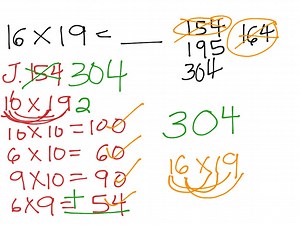 16 × 19 = ___
154
164
195
304
J. 154 304
16 × 19 2
10 × 10 = 100
6 × 10 = 60
9 × 10 = 90
6 × 9 = + 54
304
16 × 19